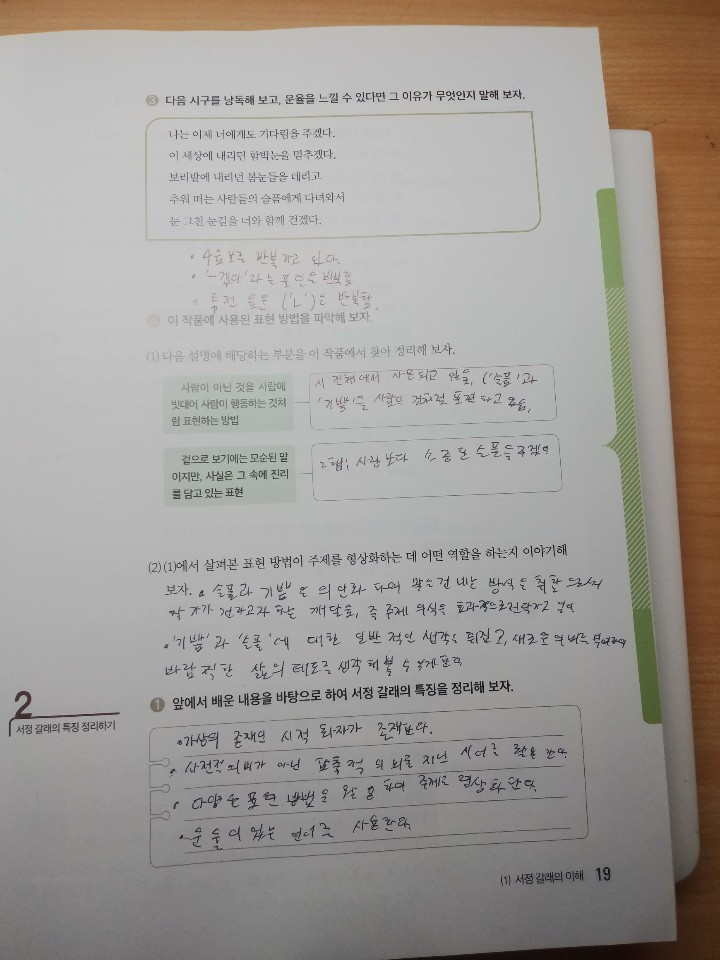 3 다음 시구를 낭독해 보고, 운율을 느낄 수 있다면 그 이유가 무엇인지 말해 보자.
나는 이제 너에게도 기다림을 주겠다.
이 세상에 내리던 함박눈을 멈추겠다.
보리밭에 내리던 봄눈들을 데리고
추워 떠는 사람들의 슬픔에게 다녀와서
눈 그친 눈길을 너와 함께 걷겠다.
• 4음보로 반복하고 있다.
• '-겠다'라는 표현을 반복함
• 특정 음운 ('ㄴ')을 반복함.
4 이 작품에 사용된 표현 방법을 파악해 보자.
(1) 다음 설명에 해당하는 부분을 이 작품에서 찾아 정리해 보자.
사람이 아닌 것을 사람에
빗대어 사람이 행동하는 것처
럼 표현하는 방법
시 전체에서 사용되고 있음, ('슬픔'과
'기쁨'을 사람인 것처럼 표현하고 있음,
겉으로 보기에는 모순된 말
이지만, 사실은 그 속에 진리
를 담고 있는 표현
2행; 사랑보다 소중한 슬픔을 주겠다
(2) (1)에서 살펴본 표현 방법이 주제를 형상화하는 데 어떤 역할을 하는지 이야기해
보자. • 슬픔과 기쁨을 의인화 하여 말을 건네는 방식을 취함으로써
작가가 전하고자 하는 깨달음, 즉 주제 의식을 효과적으로 전달하고 있다
• '기쁨'과 '슬픔'에 대한 일반적인 생각을 뒤집고, 새로운 의미를 부여하여
바람직한 삶의 태도를 생각해 볼 수 있게 한다
2
서정 갈래의 특징 정리하기
1 앞에서 배운 내용을 바탕으로 하여 서정 갈래의 특징을 정리해 보자.
• 가상의 존재인 시적 화자가 존재한다.
• 사전적 의미가 아닌 함축적 의미를 지닌 시어를 활용한다.
• 다양한 표현 방법을 활용하여 주제를 형상화한다.
• 운율이 있는 언어를 사용한다.
(1) 서정 갈래의 이해 19